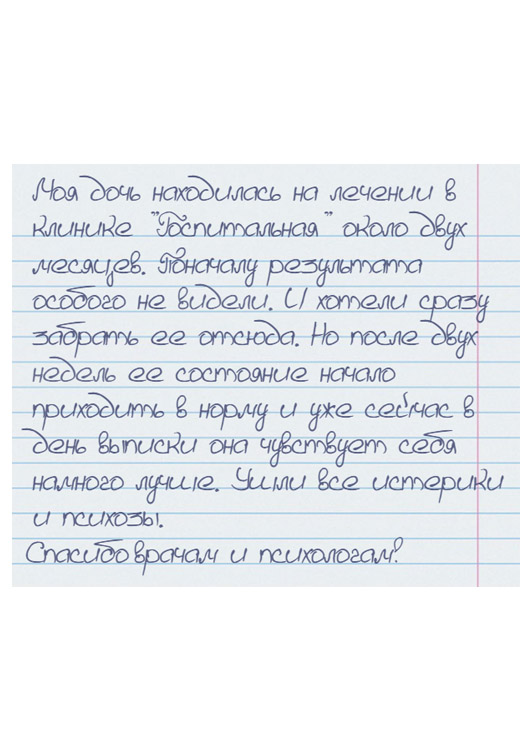 Моя дочь находилась на лечении в
клинике "Госпитальная" около двух
месяцев. Поначалу результата
особого не видели. И хотели сразу
забрать ее отсюда. Но после двух
недель ее состояние начало
приходить в норму и уже сейчас в
день выписки она чувствует себя
намного лучше. Ушли все истерики
и психозы.
Спасибо врачам и психологам!